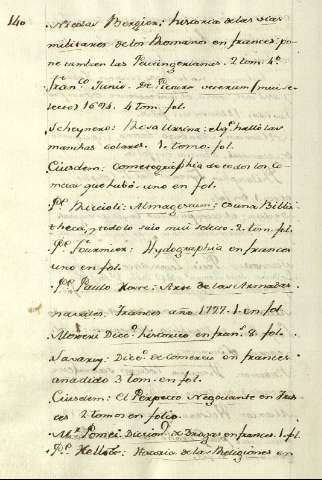 140
Nicolas Bergier: historia de las vias
militares de los Romanos en frances: po
ne tambien las Peutingerianas. 2. tom. 4º.
franco. Junio. De Pictura veterum: muy se
lecto 1694. 1 tom. fol.
Scheynero: Rosa Ursina: el q.e halló las
manchas solares. 1. tomo. fol.
Eiusdem: Cometographia de todos los Co
metas que hubo. uno en fol.
P.e Riccioli: Almagestum: es una Biblio
theca, y todo lo suio muy selecto. 2. tom. fol.
P.e Fournier: Hydographia en frances
uno en fol.
P.e Paulo Hoste: Arte de las Armadas
navales. Frances año 1727. 1. en fol.
Moreri Dicc.o historico en fran.s 8. fol.
Savary: Dicc.o de Comercio en frances
añadido 3 tom. en fol.
Eiusdem: El Perfecto Negociante en Fran
ces 2 tomos en folio.
M.r Pomei: Diccion.o de Drogas en frances. 1. fol.
P.e Helliot: Historia de las Religiones en